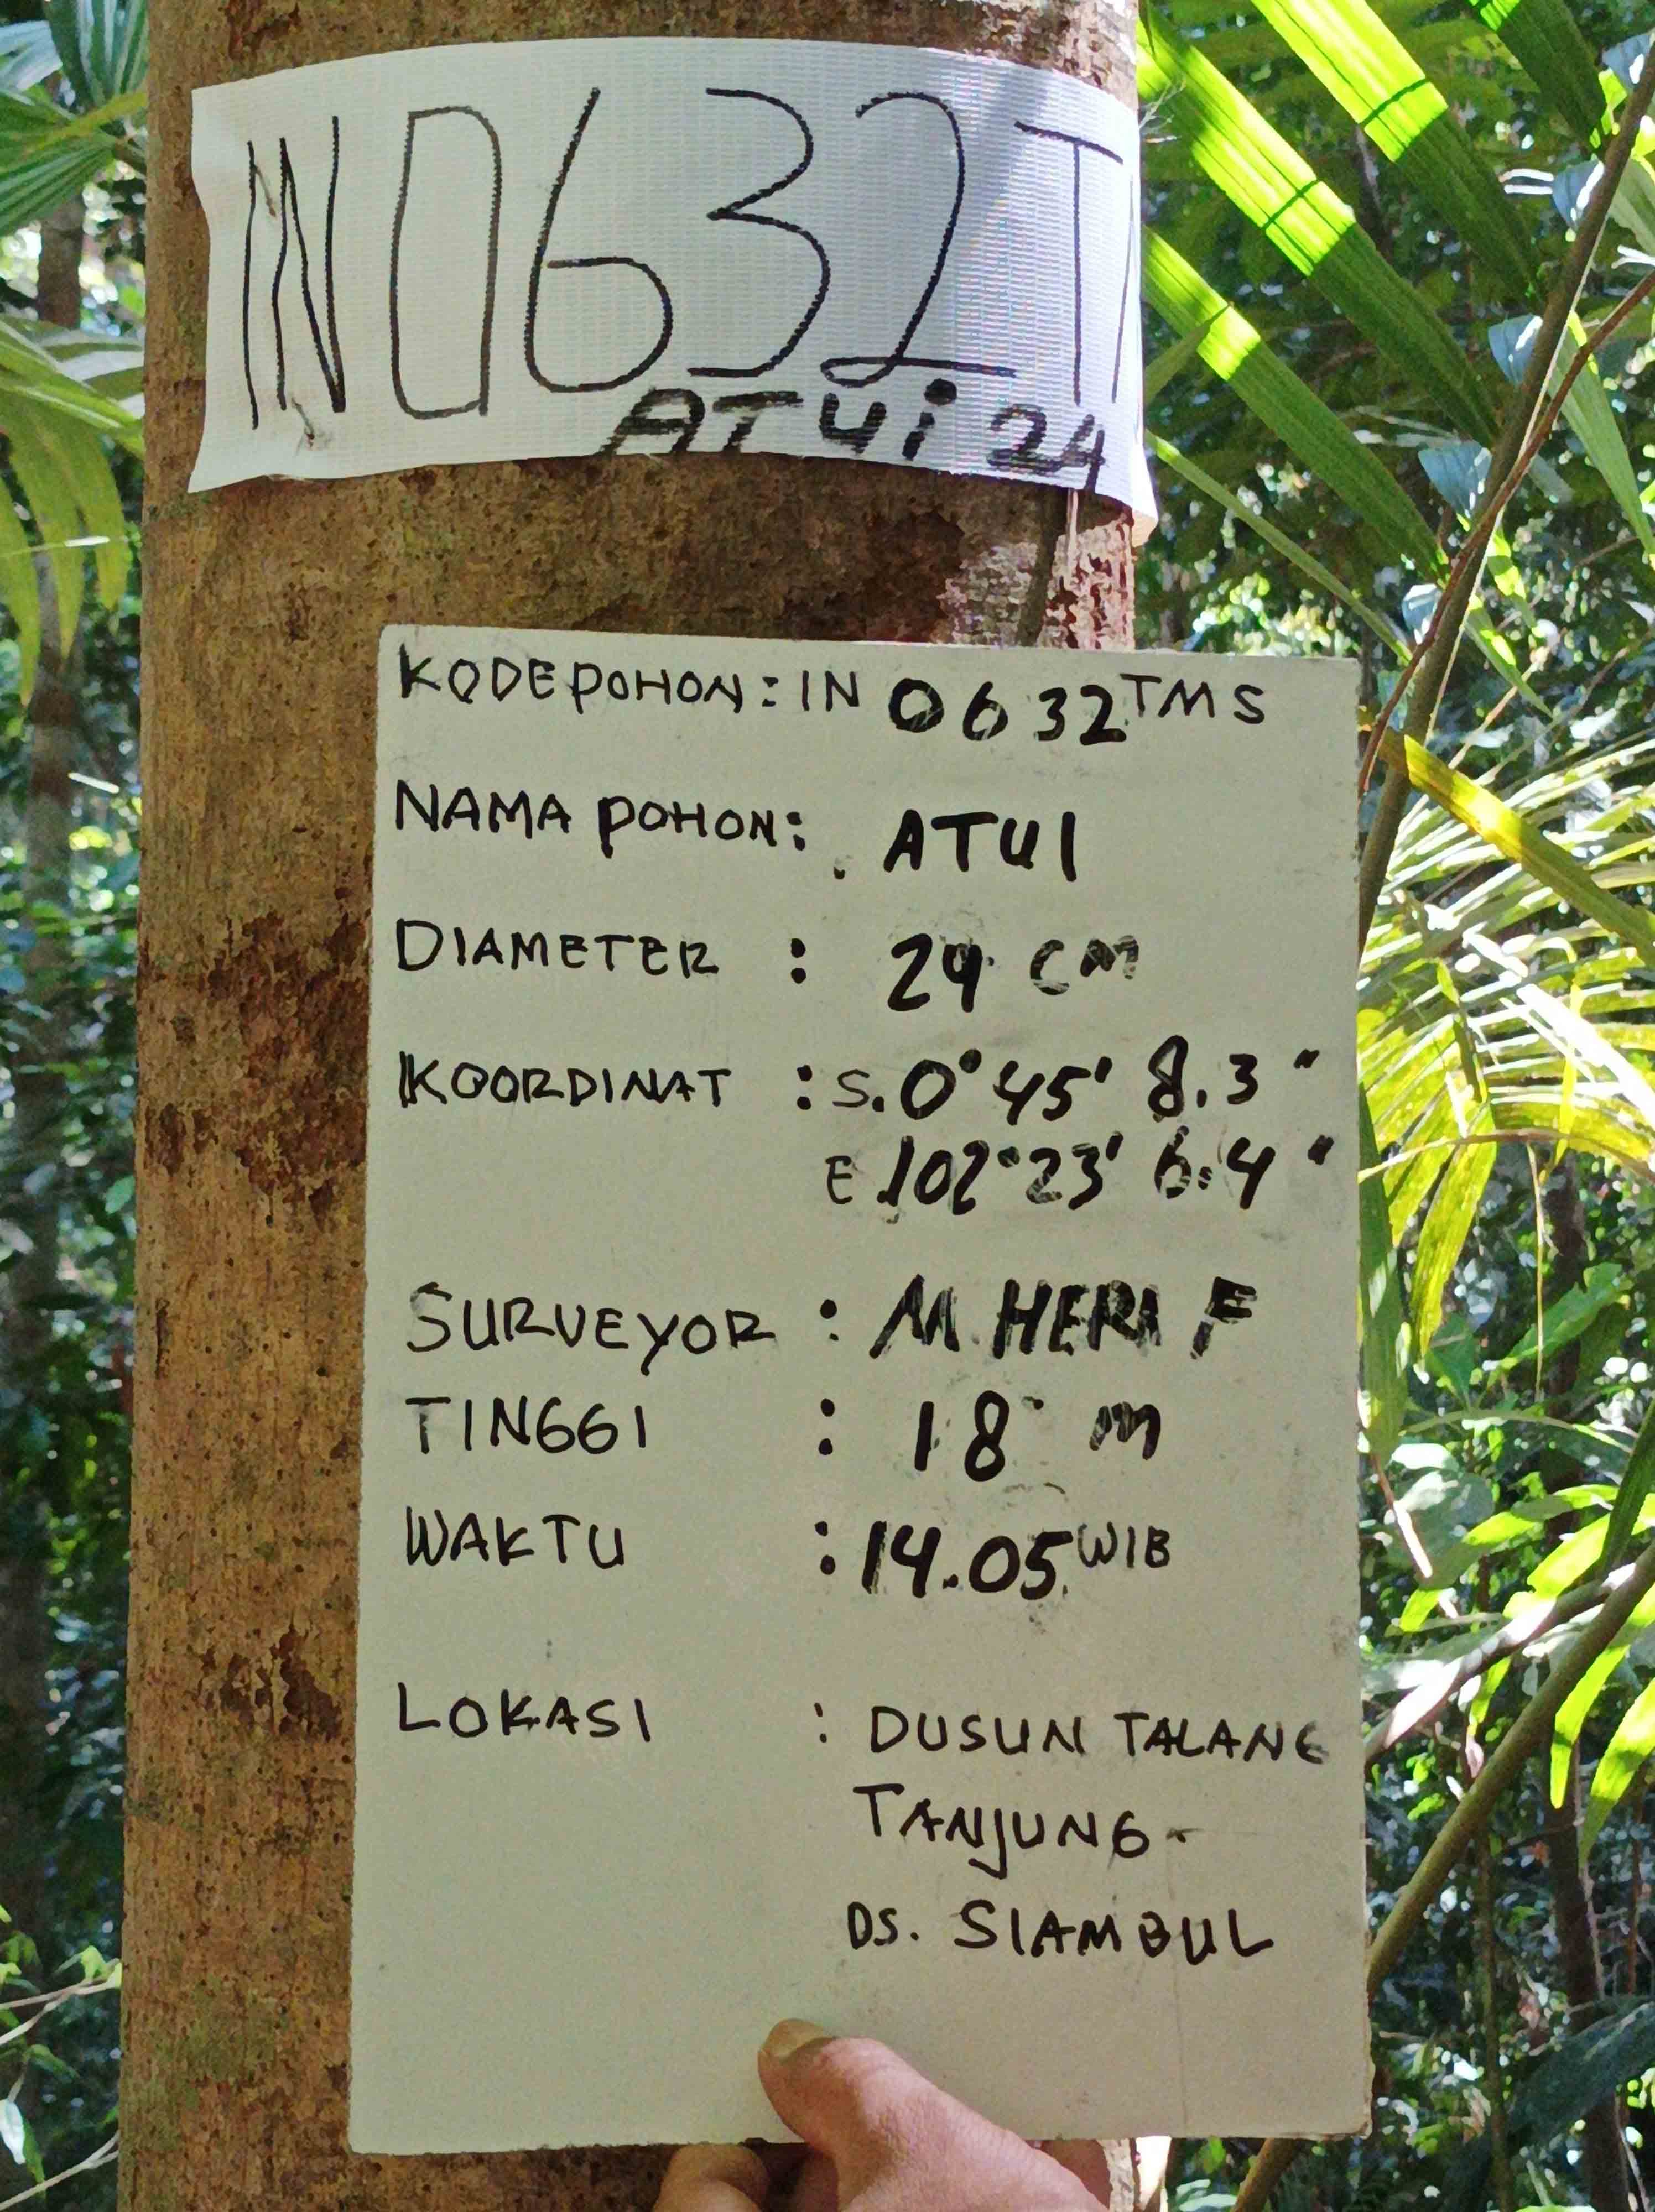 IN 0632 T
ATUi 24
KODE POHON : IN 0632 TMS
NAMA POHON : ATUI
DIAMETER : 24 CM
KOORDINAT : S. 0° 45' 8.3"
E 102° 23' 6.4"
SURVEYOR : M. HERI F
TINGGI : 18 m
WAKTU : 14.05 WIB
LOKASI : DUSUN TALANG
TANJUNG -
DS. SIAMBUL